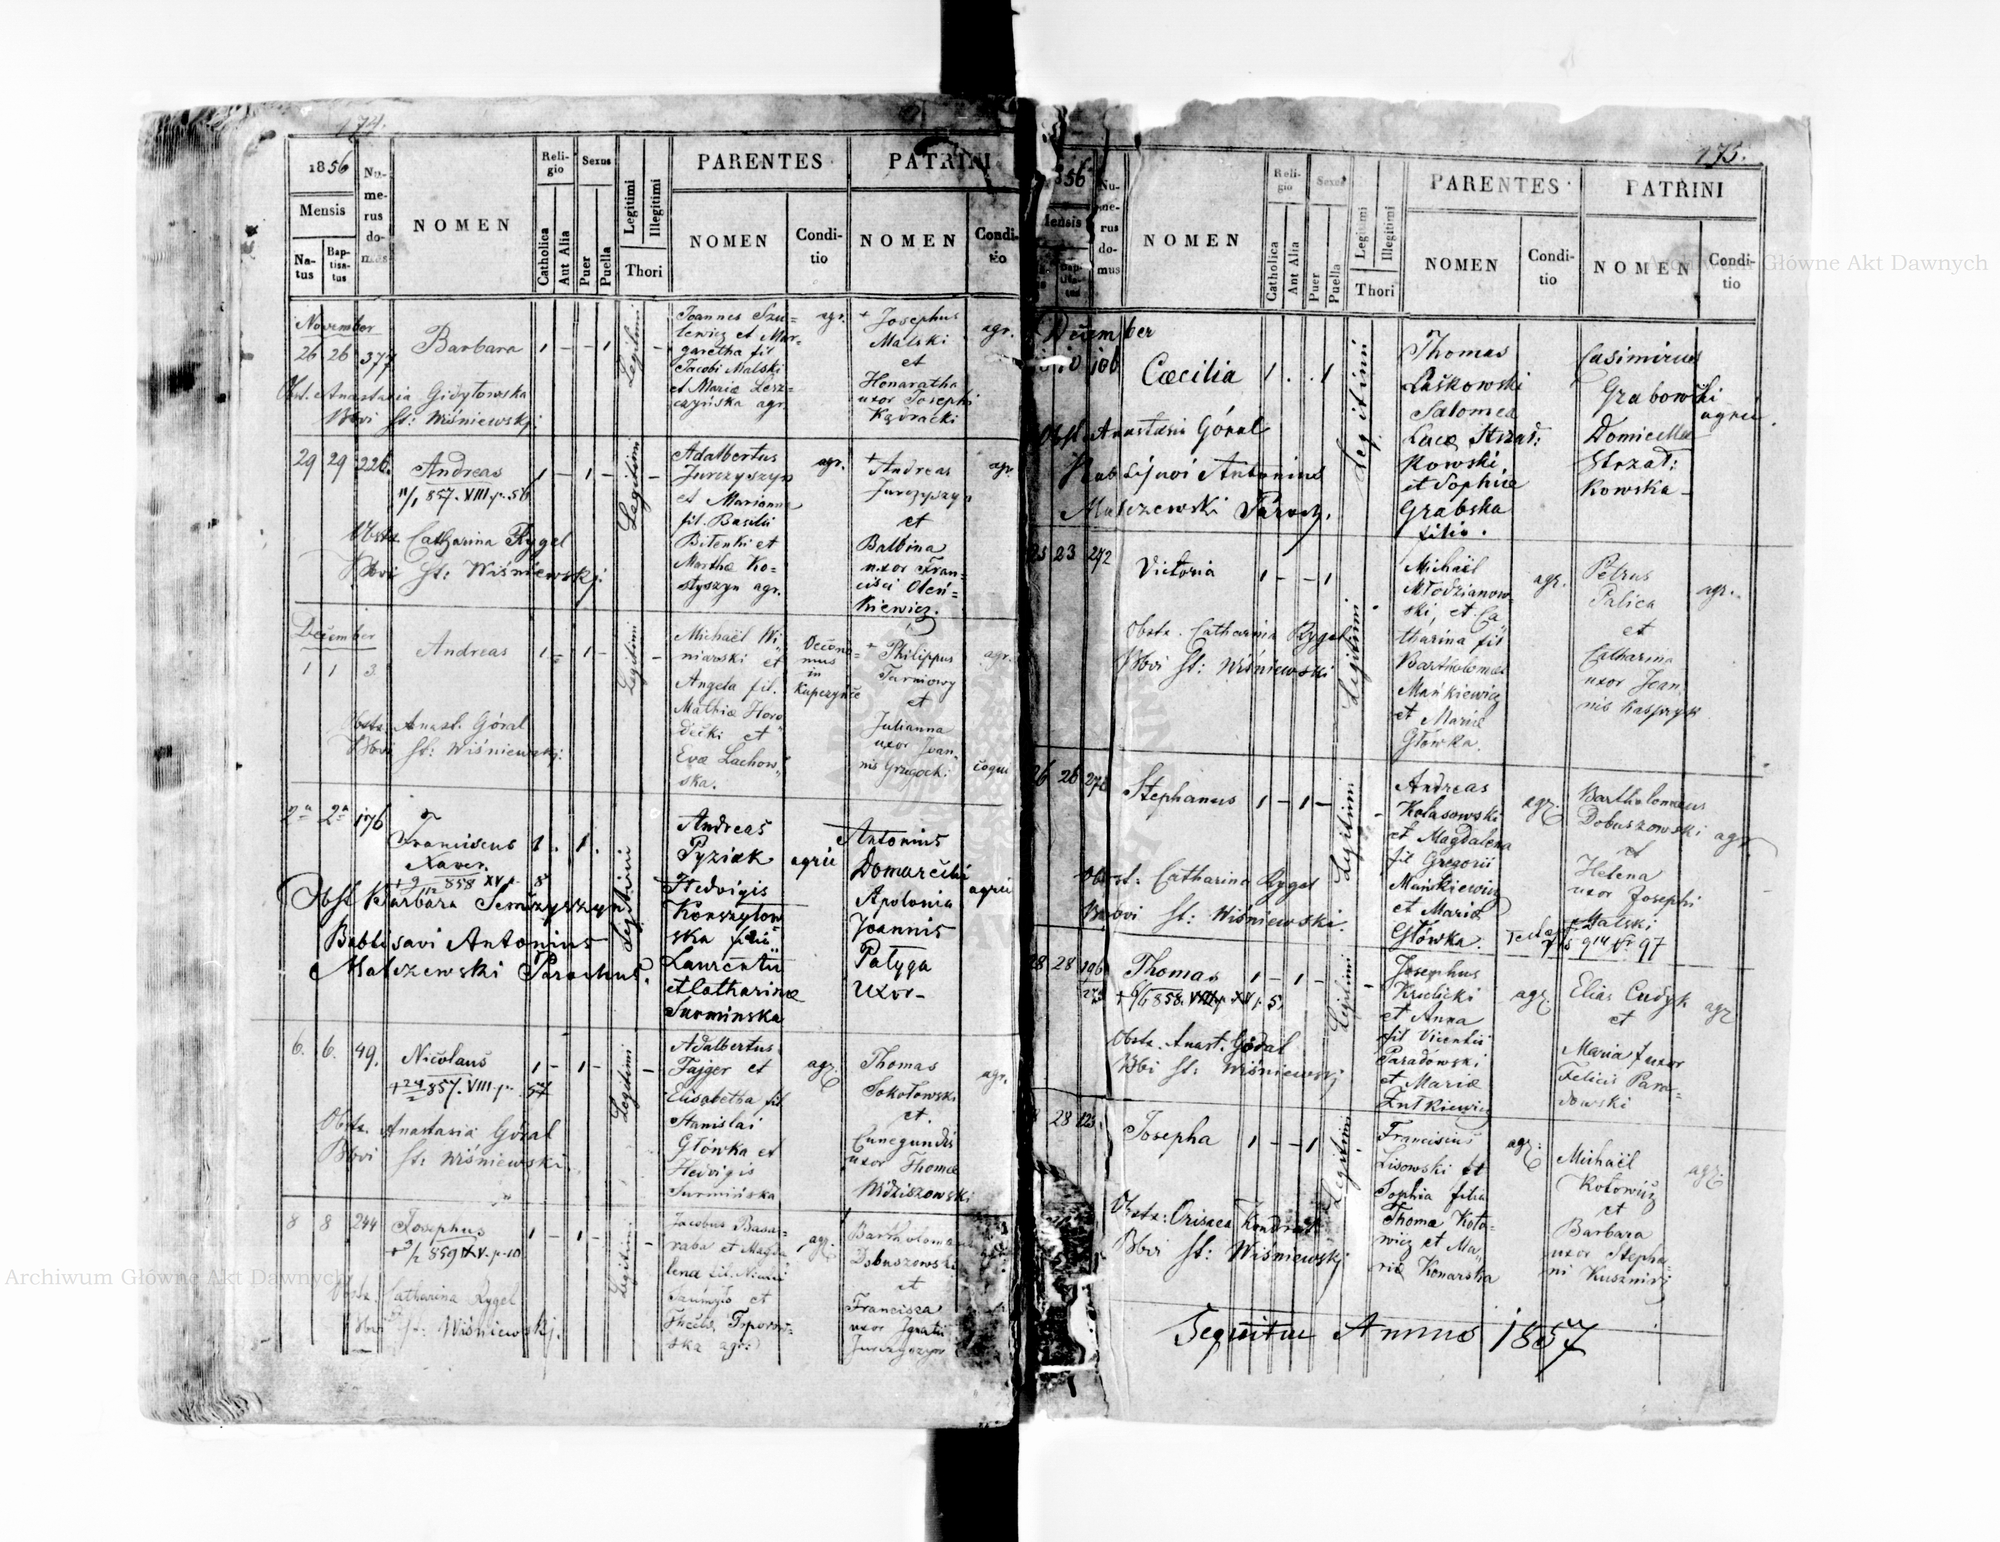 174.
1856
Mensis
Natus
Baptisatus
Numerus domus
NOMEN
Religio
Catholica
Aut Alia
Sexus
Puer
Puella
Legitimi
Illegitimi
Thori
PARENTES
NOMEN
Conditio
PATRINI
NOMEN
Conditio
November
26 26 377
Barbara
1 – – 1
Legitimi
Obst. Anastasia Gidytowska
Bbvi St: Wiśniewski
Joannes Szu=
lewicz et Mar-
garetha fil
Jacobi Malski
et Mariæ Lesz=
czyńska agr.
agr.
+ Josephus
Malski
et
Honoratha
uxor Josephi
Kądracki
agr.
29 29 226.
Andreas
11/1 857. VIII. p. 56
1 – 1 –
Legitimi
Obstr. Catharina Rygel
Bbvi St: Wiśniewski
Adalbertus
Jurczyszyn
et Marianna
fil. Basilii
Bitenki et
Martha Ko=
styszyn agr.
agr.
+ Andreas
Jurczyszyn
et
Balbina
uxor Fran=
cisci Oleń=
kiewicz.
agr
December
1 1 3
Andreas
1 – 1 –
Legitimi
Obstr. Anast. Góral
Bbvi St: Wiśniewski
Michaël Wi
niarski et
Angela fil.
Mathiæ Horo
decki et
Evæ Lachow
ska.
Oecono=
mus
in
Kupczyńce
+ Philippus
Turniowy
et
Julianna
uxor Joan
nis Grzegock:
agr.
coqui
2a 2a 176
Franciscus
Xaver.
858 XV p. 8
1 . 1 .
Legitimi
Obst Barbara Semczyszyn
Babtisavi Antonius
Malczewski Parochus.
Andreas
Pyziak
Hedvigis
Korszytow
ska filiæ
Laurentii
et Catharinæ
Surminska
agric
Antonius
Domarecki
Apolonia
Joannis
Patyga
Uxor –
agric
6. 6. 49.
Nicolaus
857. VIII. p. 57
1 – 1 –
Legitimi
Obstr. Anastasia Góral
Bbvi St: Wiśniewski
Adalbertus
Fajger et
Elisabetha fil
Stanislai
Główka et
Hedvigis
Surmińska
agr.
Thomas
Sokołowski
et.
Cunegundis
uxor Thomæ
Widziszowski
agr.
8 8 244
Josephus
859 XV. p. 10
1 – 1 –
Legitimi
Obstr. Catharina Rygel
Bbvi St: Wiśniewski.
Jacobus Basa=
raba et Magda
lena fil. Nicolai
et
agr.
Bartholomæus
Dobuszowski
et
Francisca
uxor Ignatii
Jurczyszyn
175.
1856
Mensis
Numerus domus
NOMEN
Religio
Catholica
Aut Alia
Sexus
Puer
Puella
Legitimi
Illegitimi
Thori
PARENTES
NOMEN
Conditio
PATRINI
NOMEN
Conditio
December
10 106
Cæcilia
1 . . 1
Legitimi
Obst. Anastasia Góral
Babtisavi Antonius
Malczewski Paroch.
Thomas
Laskowski
Salomea
Lucæ Strzał:
kowski,
et Sophiæ
Grabska
filia.
Casimirus
Grabowski
Domicella
Strzał:
kowska –
agric.
23 272
Victoria
1 – – 1
Legitimi
Obstr. Catharina Rygel
Bbvi St: Wiśniewski
Michaël
Młodzianow=
ski, et Ca=
tharina fil
Bartholomæi
Mańkiewicz
et Mariæ
Główka.
agr.
Petrus
Palica
et
Catharina
uxor Joan
nis Kasprzyk
agr.
26 26 272
Stephanus
1 – 1 –
Legitimi
Obst: Catharina Rygel
Babvi St: Wiśniewski.
Andreas
Kolasowski
et Magdalena
fil Gregorii
Mańkiewicz
et Mariæ
Główka.
agr.
Bartholomæus
Dobuszowski
et
Helena
uxor Josephi
Malski
914 97
agr.
28 28 196
Thomas
858. XV p. 5.
1 – 1 –
Legitimi
Obstr. Anast. Góral
Bbvi St: Wiśniewski
Josephus
Krulicki
et Anna
fil Vicentii
Paradowski
et Mariæ
Zutkiewicz
agr.
Elias Cudyk
et
Maria uxor
Felicis Para=
dowski
agr
28 123.
Josepha
1 – – 1
Legitimi
Kondrat
Bbvi St: Wiśniewski
Franciscus
Lisowski et
Sophia filia
Thomæ Koto=
wicz et Ma
riæ Konarska
agr.
Michaël
Kotowicz
et
Barbara
uxor Stepha=
ni Kusznirz
agr.
Sequitur Annus 1857
Archiwum Główne Akt Dawnych
Archiwum Główne Akt Dawnych